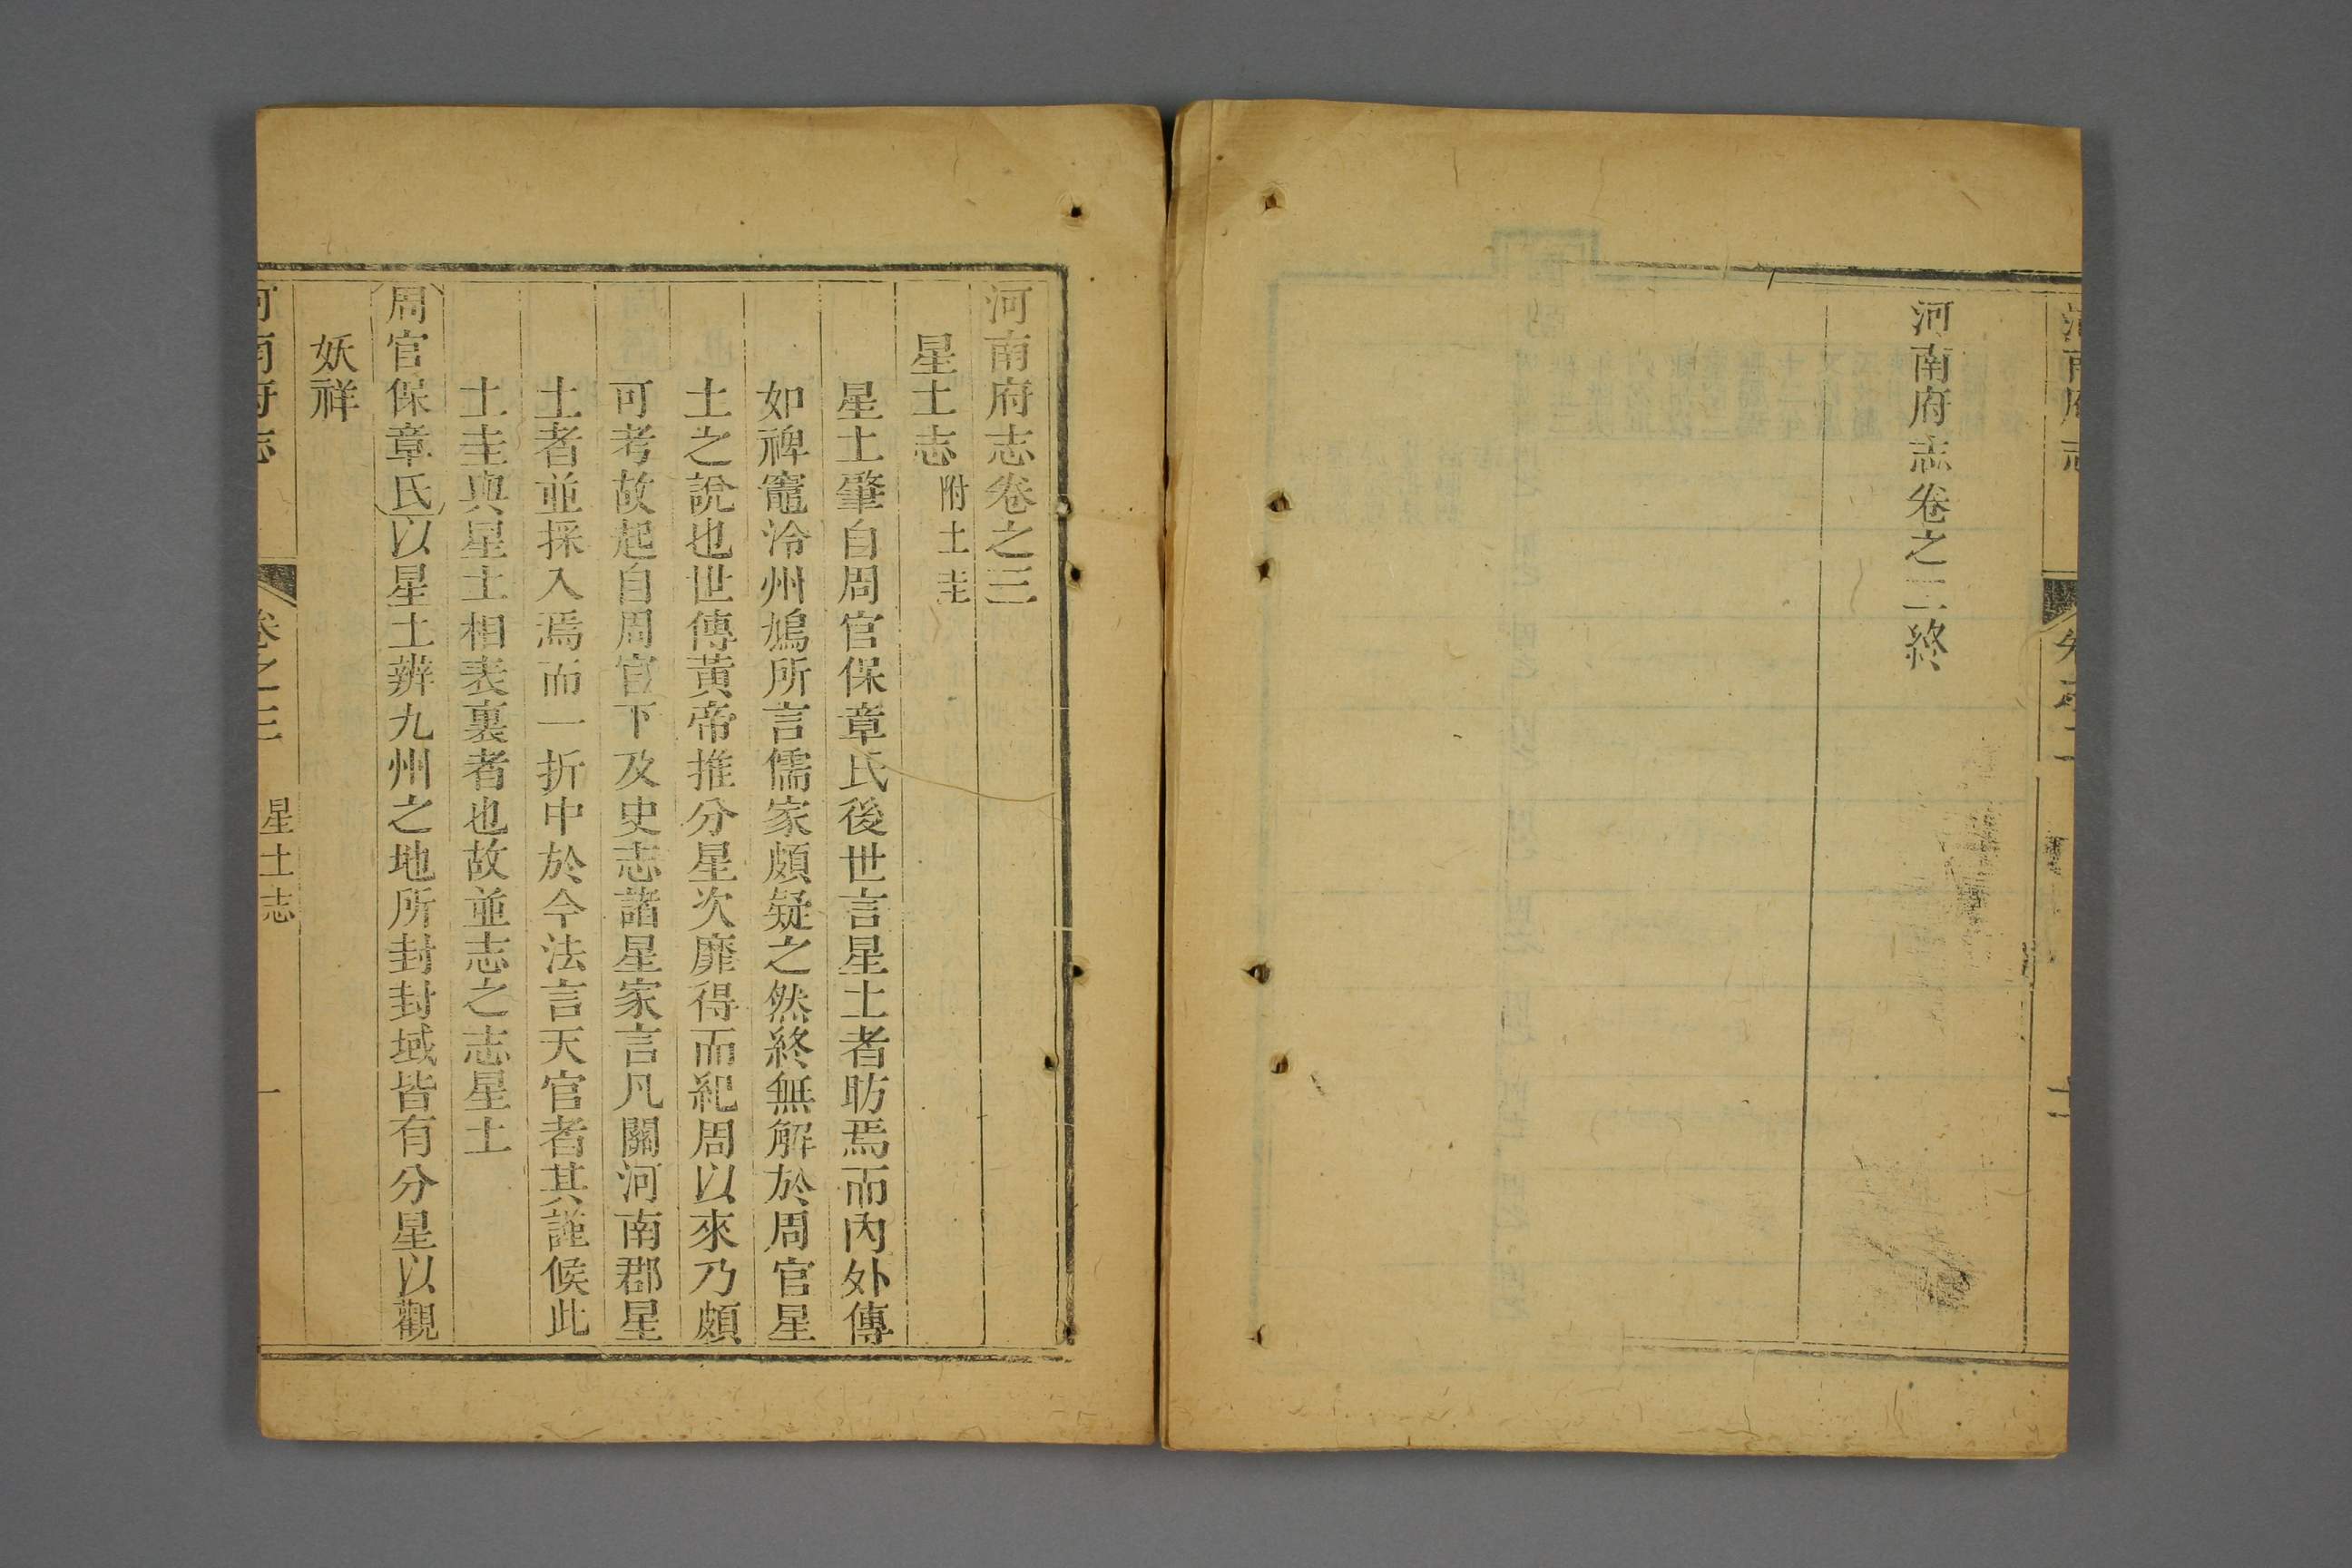 河南府志
河南府志卷之二終
河南府志卷之三
星土志附土圭
星土肇自周官保章氏後世言星土者昉焉而內外傳
如裨竈泠州鳩所言儒家頗疑之然終無解於周官星
土之說也世傳黃帝推分星次靡得而紀周以來乃頗
可考故起自周官下及史志諸星家言凡關河南郡星
土者並採入焉而一折中於今法言天官者其謹候此
土圭與星土相表裏者也故並志之志星土
周官保章氏以星土辨九州之地所封封域皆有分星以觀
妖祥
河南府志 卷之三 星土志 一